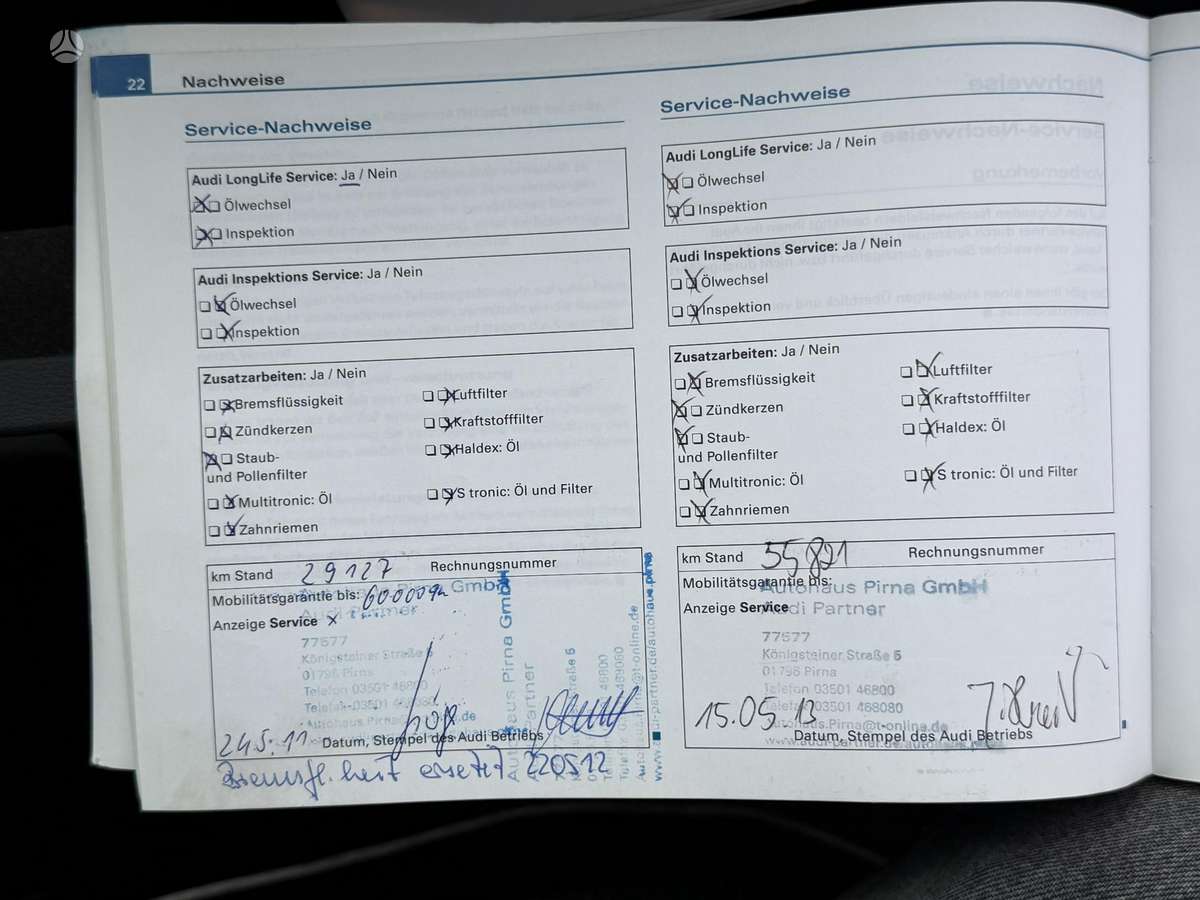 22
Nachweise
Service-Nachweise
Audi LongLife Service: Ja / Nein
Ölwechsel
Inspektion
Audi Inspektions Service: Ja / Nein
Ölwechsel
Inspektion
Zusatzarbeiten: Ja / Nein
Bremsflüssigkeit
Zündkerzen
Staub-
und Pollenfilter
Multitronic: Öl
Zahnriemen
Luftfilter
Kraftstofffilter
Haldex: Öl
S tronic: Öl und Filter
km Stand 29127 Rechnungsnummer
Mobilitätsgarantie bis:
Anzeige Service x
Autohaus Pirna GmbH
Audi Partner
77577
Königsteiner Straße 6
01796 Pirna
Telefon 03501 46800
24.5.11
Datum, Stempel des Audi Betriebs
Autohaus Pirna GmbH
Bremsfl. ersetzt 220512
Service-Nachweise
Audi LongLife Service: Ja / Nein
Ölwechsel
Inspektion
Audi Inspektions Service: Ja / Nein
Ölwechsel
Inspektion
Zusatzarbeiten: Ja / Nein
Bremsflüssigkeit
Zündkerzen
Staub-
und Pollenfilter
Multitronic: Öl
Zahnriemen
Luftfilter
Kraftstofffilter
Haldex: Öl
S tronic: Öl und Filter
km Stand 55821 Rechnungsnummer
Mobilitätsgarantie bis:
Autohaus Pirna GmbH
Anzeige Service
Audi Partner
77577
Königsteiner Straße 6
01796 Pirna
Telefon 03501 46800
Telefax 03501 468080
15.05.13
Autohaus.Pirna@t-online.de
Datum, Stempel des Audi Betriebs
www.audi-partner.de/autohaus.pirna